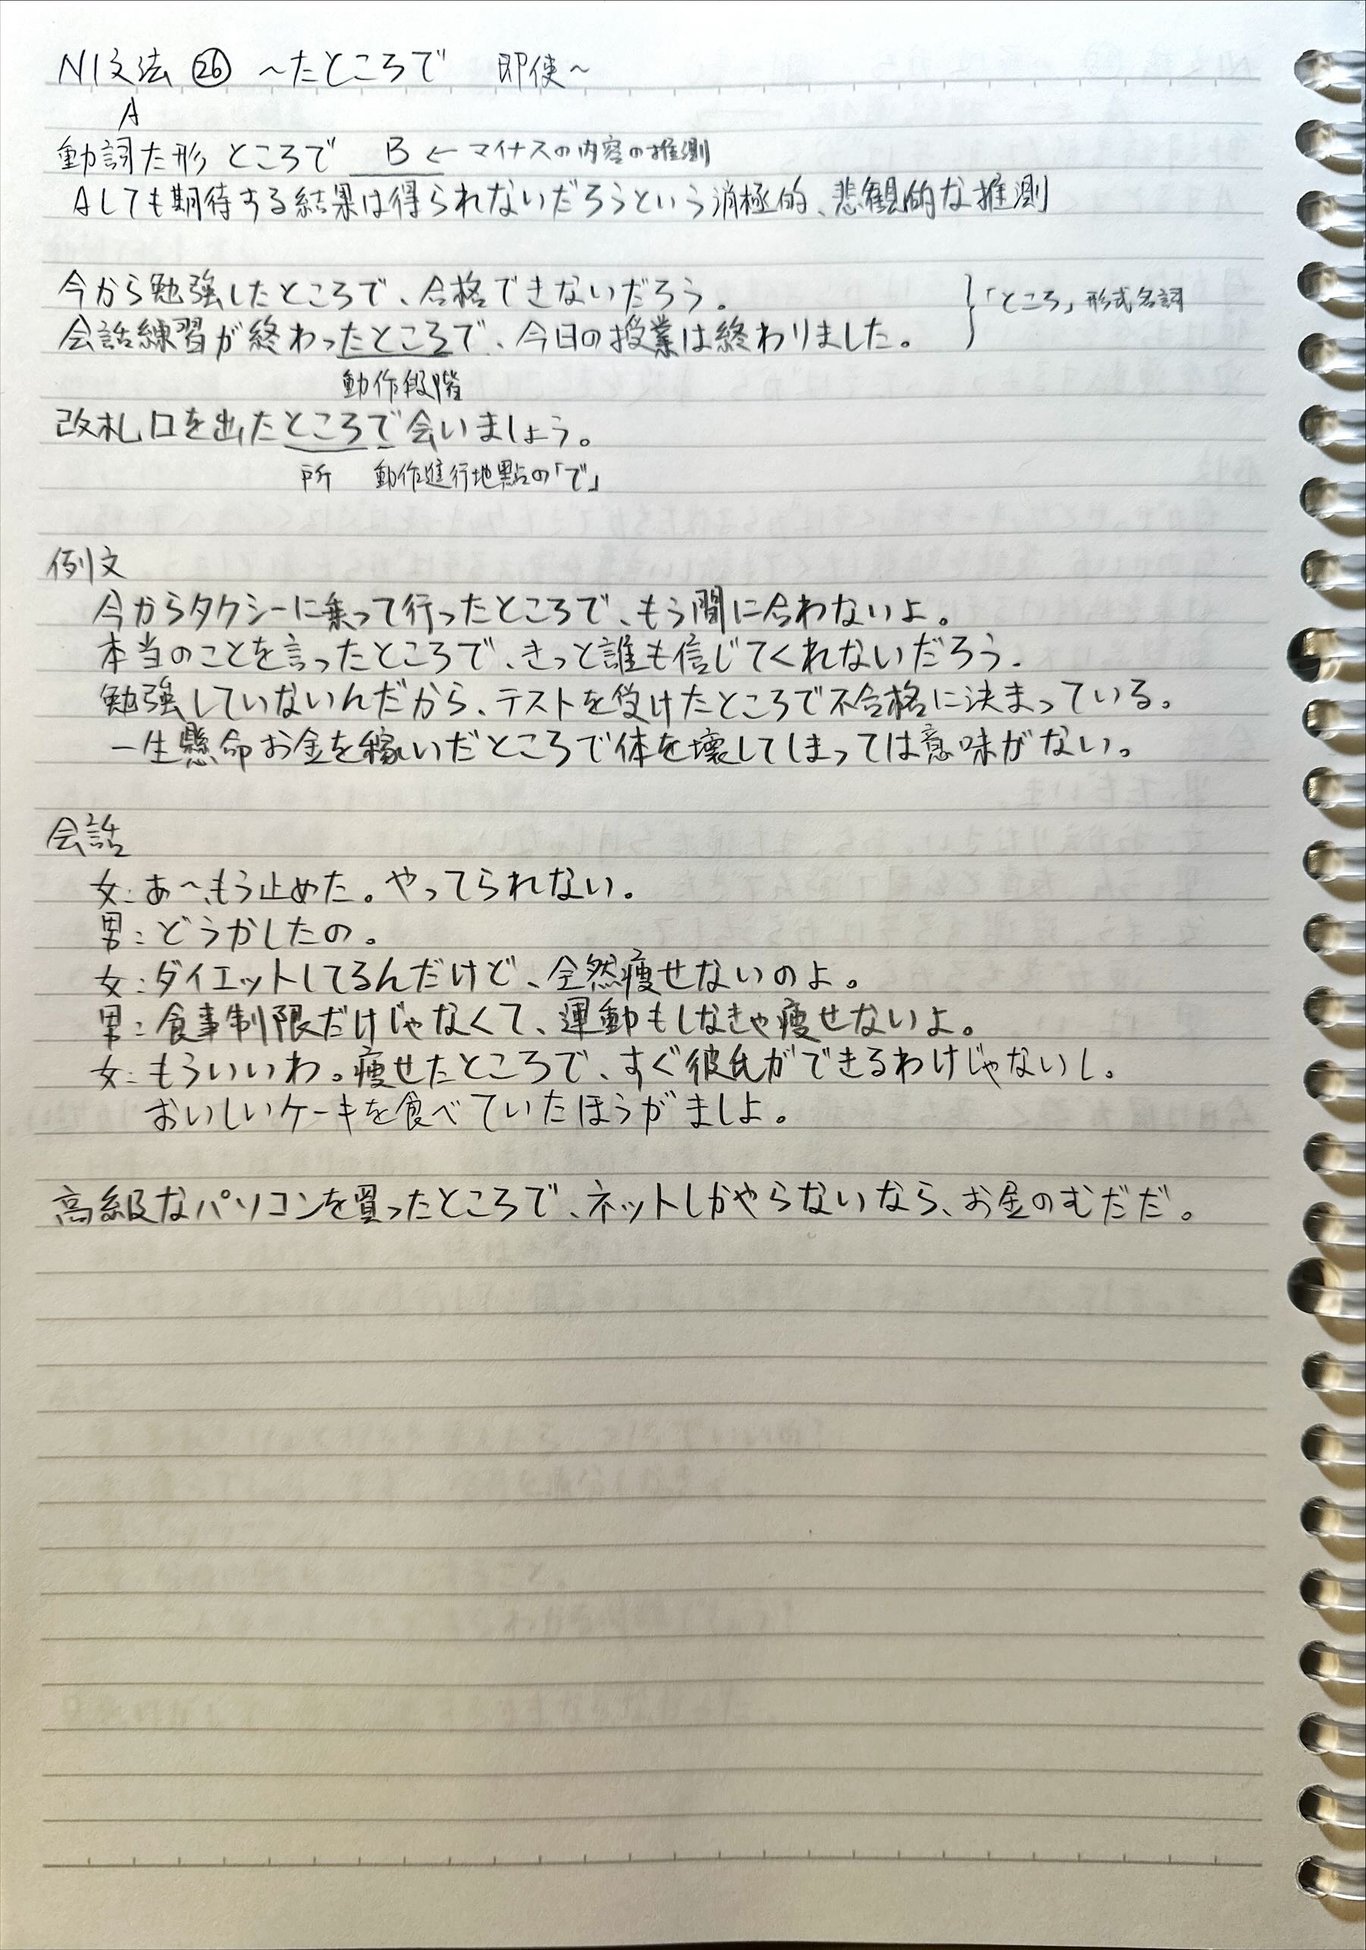 N1文法 ㉖ ～たところで 即使～
A
動詞た形 ところで B ← マイナスの内容の推測
Aしても期待する結果は得られないだろうという消極的、悲観的な推測
今から勉強したところで、合格できないだろう。
会話練習が終わったところで、今日の授業は終わりました。 } 「ところ」形式名詞
動作段階
改札口を出たところで会いましょう。
所 動作進行地點の「で」
例文
今からタクシーに乗って行ったところで、もう間に合わないよ。
本当のことを言ったところで、きっと誰も信じてくれないだろう。
勉強していないんだから、テストを受けたところで不合格に決まっている。
一生懸命お金を稼いだところで体を壊してしまっては意味がない。
会話
女：あ～、もう止めた。やってられない。
男：どうかしたの。
女：ダイエットしてるんだけど、全然痩せないのよ。
男：食事制限だけじゃなくて、運動もしなきゃ痩せないよ。
女：もういいわ。痩せたところで、すぐ彼氏ができるわけじゃないし。
おいしいケーキを食べていたほうがましよ。
高級なパソコンを買ったところで、ネットしかやらないなら、お金のむだだ。